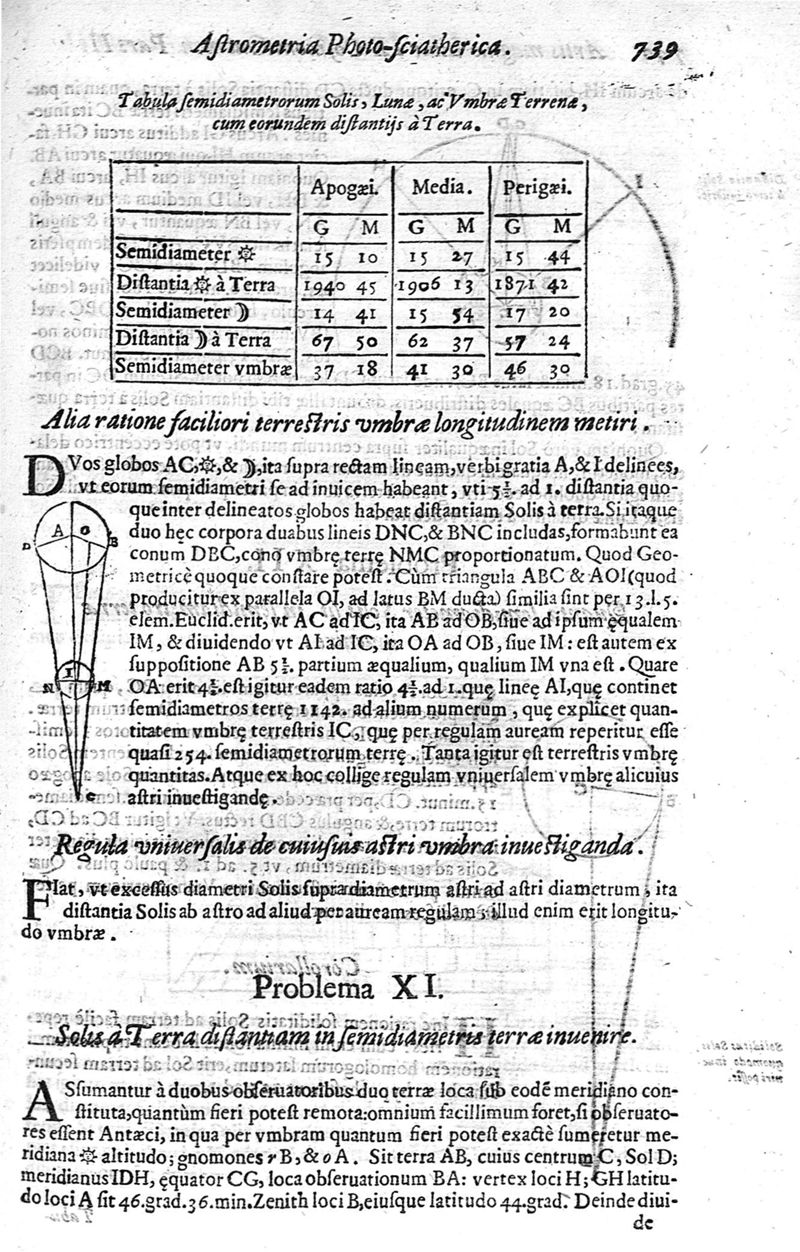 Astrometria Photo-sciatherica. 739
Tabula semidiametrorum Solis, Lunæ, ac Vmbræ Terrenæ,
cum eorundem distantijs à Terra.
Apogæi. Media. Perigæi.
G M G M G M
Semidiameter ☼ 15 10 15 27 15 44
Distantia ☼ à Terra 1940 45 1906 13 1871 42
Semidiameter ☽ 14 41 15 54 17 20
Distantia ☽ à Terra 67 50 62 37 57 24
Semidiameter vmbræ 37 18 41 30 46 30
Alia ratione faciliori terrestris vmbræ longitudinem metiri.
DVos globos AC, ☼, & ☽, ita supra rectam lineam, verbi gratia A, & I delinees,
vt eorum semidiametri se ad inuicem habeant, vti 5½. ad 1. distantia quo-
que inter delineatos globos habeat distantiam Solis à terra. Si itaque
duo hęc corpora duabus lineis DNC, & BNC includas, formabunt ea
conum DBC, cono vmbrę terrę NMC proportionatum. Quod Geo-
metricè quoque constare potest. Cùm triangula ABC & AOI (quod
producitur ex parallela OI, ad latus BM ducta) similia sint per 13. l. 5.
elem. Euclid. erit, vt AC ad IC, ita AB ad OB, siue ad ipsum ęqualem
IM, & diuidendo vt AI ad IC, ita OA ad OB, siue IM: est autem ex
suppositione AB 5½. partium æqualium, qualium IM vna est. Quare
OA erit 4½. est igitur eadem ratio 4½. ad 1. quę lineę AI, quę continet
semidiametros terrę 1142. ad alium numerum, quę explicet quan-
titatem vmbrę terrestris IC, quę per regulam auream reperitur esse
quasi 254. semidiametrorum terrę. Tanta igitur est terrestris vmbrę
quantitas. Atque ex hoc collige regulam vniuersalem vmbrę alicuius
astri inuestigandę.
A O
D B
I
N M
C
Regula vniuersalis de cuiusuis astri vmbra inuestiganda.
FIat, vt excessus diametri Solis supra diametrum astri ad astri diametrum, ita
distantia Solis ab astro ad aliud per auream regulam; illud enim erit longitu-
do vmbræ.
Problema XI.
Solis à Terra distantiam in semidiametris terræ inuenire.
ASsumantur à duobus obseruatoribus duo terræ loca sub eodē meridiano con-
stituta, quantùm fieri potest remota: omnium facillimum foret, si obseruato-
res essent Antæci, in qua per vmbram quantum fieri potest exactè sumeretur me-
ridiana ☼ altitudo; gnomones r B, & o A. Sit terra AB, cuius centrum C, Sol D;
meridianus IDH, ęquator CG, loca obseruationum BA: vertex loci H; GH latitu-
do loci A sit 46. grad. 36. min. Zenith loci B, eiusque latitudo 44. grad. Deinde diui-
de